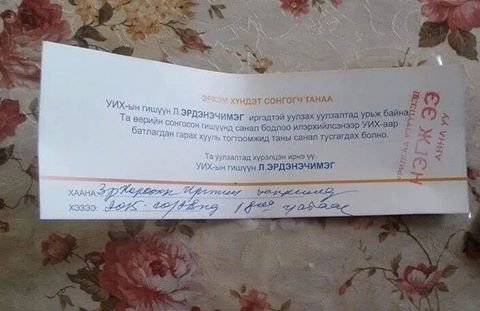 ЭРХЭМ ХҮНДЭТ СОНГОГЧ ТАНАА
УИХ-ын гишүүн Л.ЭРДЭНЭЧИМЭГ иргэдтэй уулзах уулзалтад урьж байна.
Та өөрийн сонгосон гишүүнд санал бодлоо илэрхийлсэнээр УИХ-аар
батлагдан гарах хууль тогтоомжид таны санал тусгагдах болно.
Та уулзалтад хүрэлцэн ирнэ үү.
УИХ-ын гишүүн Л.ЭРДЭНЭЧИМЭГ
ХААНА: 3р хорооны
ХЭЗЭЭ: 2015
АВНА УУ